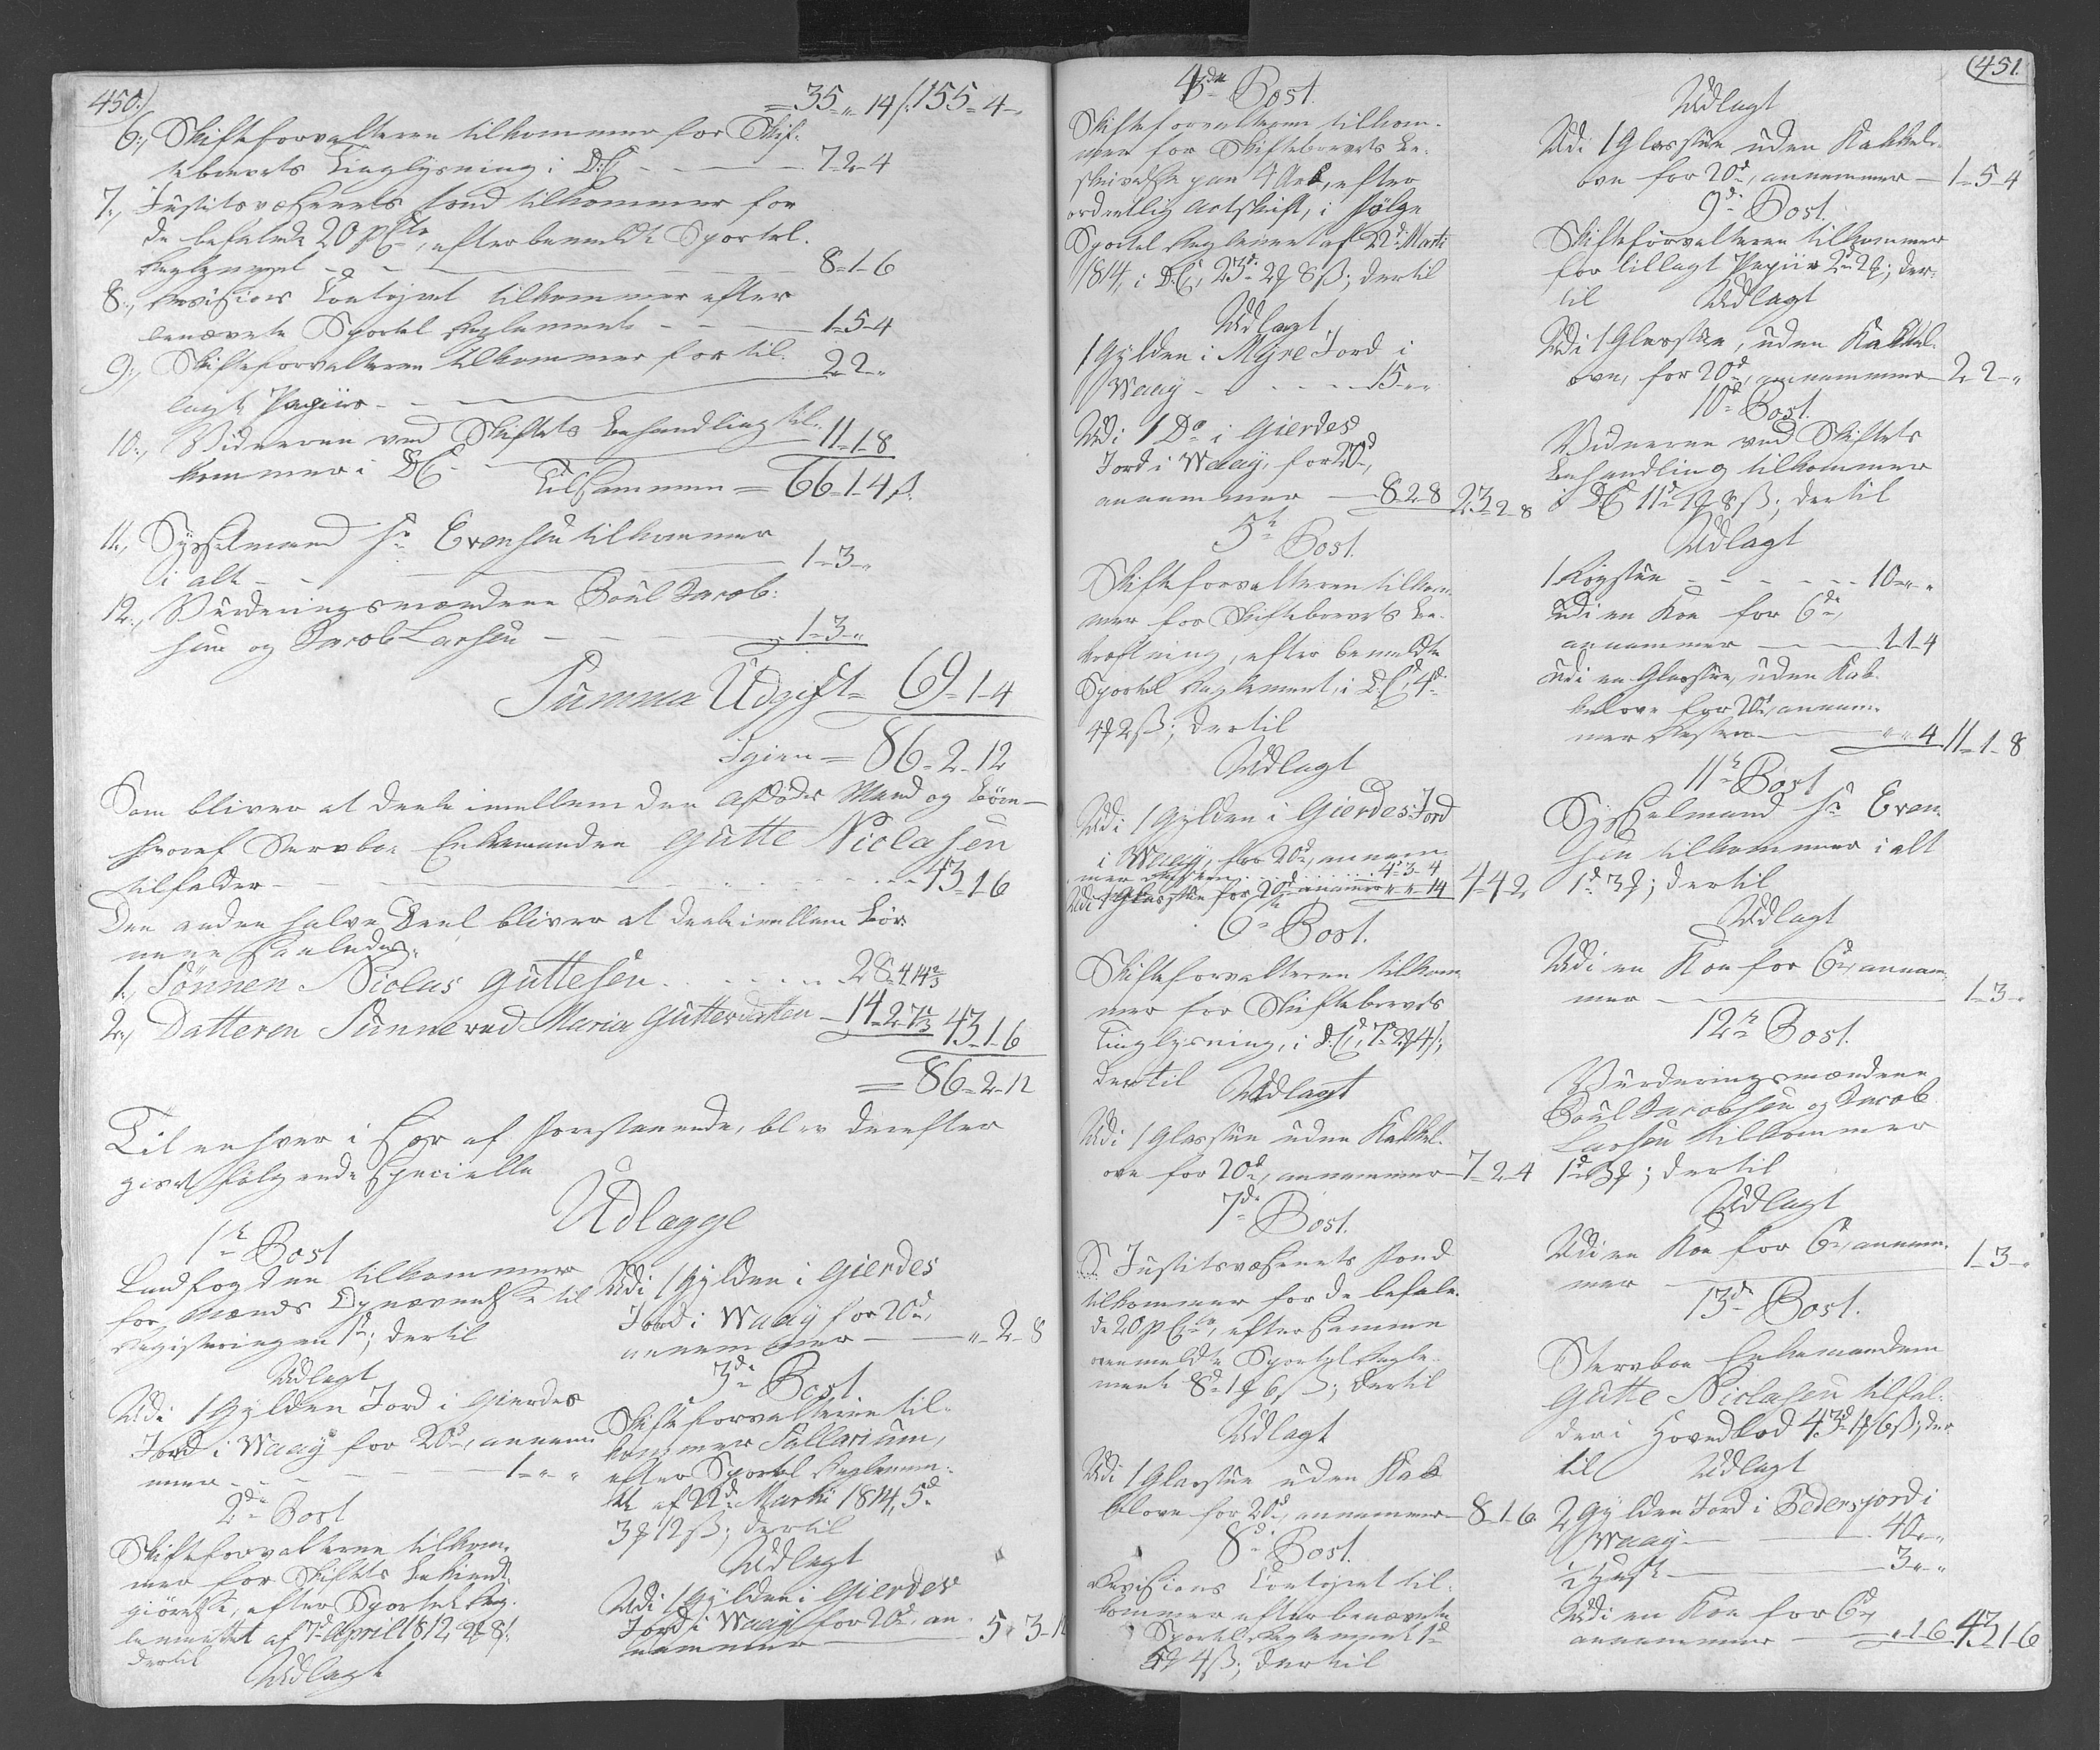 450.)
= 35 - „ 14 /: 155 - 4 -
6., Skifteforvalteren tilkommer for Skif-
tebrevets Tinglysning i D:C: - - - 7-2-4
7., Justitsvæsenets Fond tilkommer for
de befalede 20 p Cto, efter bemeldte Sportel-
Reglement - - - 8-1-6
8., Revisions Contoiret tilkommer efter
benævnte Sportel Reglement - - - 1-5-4
9., Skifteforvalteren tilkommer for til-
lagt Papiir - - - 2-2-„
10., Vidnerne ved Skiftets Behandling til-
kommer i D:C: - - 11-1-8
Tilsammen = 66-1-4 ß.
11., Sysselmand Hr Evensen tilkommer
i alt - - - 1-3-„
12., Vurderingsmændene Poul Jacob-
sen og Jacob Larsen - - - 1-3-„
Summa Udgift = 69-1-4
Igien = 86-2-12
Som bliver at deele imellem den Afdødes Mand og Børn -
hvoraf Stervboe Enkemanden Gutte Niclasen
tilfalder - - - 43-1-6
Den anden halve Deel bliver at deele imellem Bør-
nene saaledes:
1., Sønnen Niclas Guttesen - - - 28-4-14 2/3
2., Datteren Sunneva Maria Guttesdatter - 14-2-7 1/3 43-1-6
= 86-2-12
Til enhver i Sær af Forestaaende, blev derefter
giort følgende Specielle
Udlægge
1te Post
Landfogden tilkommer
for Mænds Opnævnelse til
Registeringen 1d; dertil
Udlagt
Udi 1 Gylden Jord i Gierdes
Jord i Waag for 20d, annam-
mer - - - 1-„-„
2den Post
Skifteforvalteren tilkom-
mer for Skiftets Bekiendt-
giørelse, efter Sportel Reg-
lementet af 7de April 1812, 2 8 ß.
dertil
Udlagt
Udi 1 Gylden i Gierdes
Jord i Waag for 20d,
annammer - - „-2-8
3die Post.
Skifteforvalteren til-
kommer Sallarium,
efter Sportel Reglemen-
tet af 22d Martii 1814, 5d
3 12 ß; dertil
Udlagt
Udi 1 Gylden i Gierdes
Jord i Waag for 20d, an-
nammer - 5-3-12
4de Post.
Skifteforvalteren tilkom-
mer for Skiftebrevets Be-
skrivelse paa 4 Ark, efter
ordentlig Artskrift, i Følge
Sportel Reglement af 22d Marti
1814, i D:C, 23d 2 8 ß; dertil
Udlagt
1 Gylden i Myre Jord i
Waag - - - 15-„-„
Udi 1 Do i Gierdes
Jord i Waag, for 20d,
annammer - 8-2-8 23-2-8
5te Post.
Skifteforvalteren tilkom-
mer for Skiftebrevets Be-
kræftning, efter bemeldte
Sportel Reglement, i D:C: 4d
4 2 ß; dertil
Udlagt
Udi 1 Gylden i Gierdes Jord
i Waag, for 20d, annam-
mer Resten - - - 4-3-4
Udi 1 Glasstue for 20d annammer „-„-14 4-4-2
6te Post.
Skifteforvalteren tilkom-
mer for Skiftebrevets
Tinglysning, i D:C, 7d 2 4 ß;
dertil
Udlagt
Udi 1 Glasstue uden Kakkel-
ovn for 20d, annammer - 7-2-4
7de Post.
Justitsvæsenets Fond
tilkommer for de befale-
de 20 p Cto, efter samme
ovenmeldte Sportel Regle-
ment 8d 1 6 ß; dertil
Udlagt
Udi 1 Glasstue uden Kak-
kelovn for 20d, annammer - 8-1-6
8de Post.
Revisions Contoiret til-
kommer efter benævnte
Sportel Reglement 1d
5 4 ß; dertil
451.
Udlagt
Udi 1 Glasstue uden Kakkel-
ovn for 20d, annammer - 1-5-4
9de Post.
Skifteforvalteren tilkommer
for tillagt Papiir 2d 2; der-
til Udlagt
Udi 1 Glasstue, uden Kakkel-
ovn, for 20d, annammer - 2-2-„
10de Post.
Vidnerne ved Skiftets
Behandling tilkommer
i D:C 11d 1 8 ß; dertil
Udlagt
1 Røgstue - - - 10-„-„
Udi en Koe for 6d,
annammer - - 1-1-4
Udi en Glasstue, uden Kak-
kelovn for 20d, annam-
mer Resten - „-„-4 11-1-8
11te Post
Sysselmand Hr Even-
sen tilkommer i alt
1d 3; dertil
Udlagt
Udi en Koe for 6d, annam-
mer - - 1-3-„
12te Post.
Vurderingsmændene
Poul Jacobsen og Jacob
Larsen tilkommer
1d 3; dertil
Udlagt
Udi en Koe for 6d, annam-
mer - - 1-3-„
13de Post.
Stervboe Enkemanden
Gutte Niclasen tilfal-
der i Hovedlod 43d 1 6 ß; der-
til Udlagt
2 Gylden Jord i Pedersjord i
Waag - - 40-„-„
1/2 - 3-„-„
Udi en Koe for 6d,
annammer - „-1-6 43-1-6